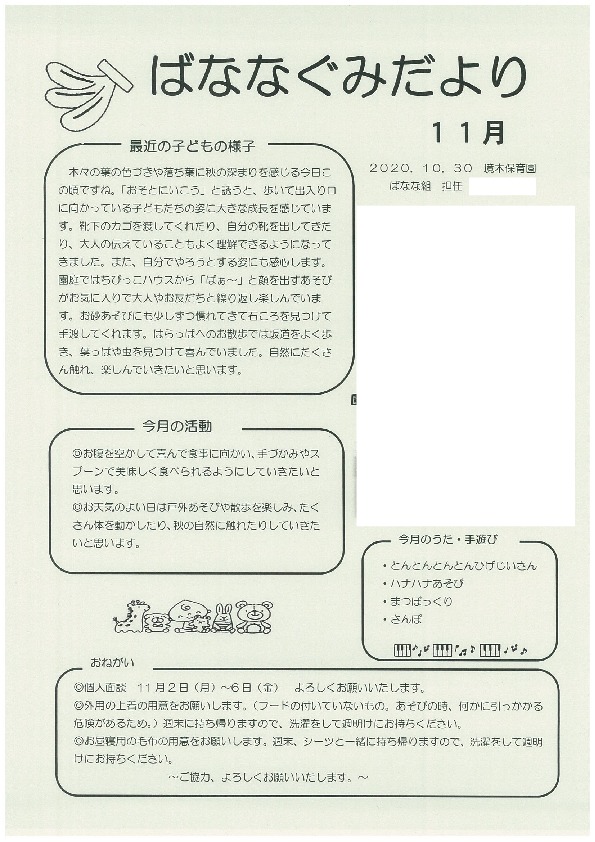 ばななぐみだより
11月
2020．10．30　境木保育園
ばなな組　担任
最近の子どもの様子
木々の葉の色づきや落ち葉に秋の深まりを感じる今日こ
の頃ですね。「おそとにいこう」と誘うと、歩いて出入り口
に向かっている子どもたちの姿に大きな成長を感じていま
す。靴下のカゴを渡してくれたり、自分の靴を出してきた
り、大人の伝えていることもよく理解できるようになって
きました。また、自分でやろうとする姿にも感心します。
園庭ではちびっこハウスから「ばぁ～」と顔を出すあそび
がお気に入りで大人やお友だちと繰り返し楽しんでいま
す。お砂あそびにも少しずつ慣れてきて石ころを見つけて
手渡してくれます。はらっぱへのお散歩では坂道をよく歩
き、葉っぱや虫を見つけて喜んでいました。自然にたくさ
ん触れ、楽しんでいきたいと思います。
今月の活動
◎お腹を空かして喜んで食事に向かい、手づかみやス
プーンで美味しく食べられるようにしていきたいと
思います。
◎お天気のよい日は戸外あそびや散歩を楽しみ、たく
さん体を動かしたり、秋の自然に触れたりしていきた
いと思います。
今月のうた・手遊び
・とんとんとんとんひげじいさん
・ハナハナあそび
・まつぼっくり
・さんぽ
おねがい
◎個人面談　11月2日（月）～6日（金）　よろしくお願いいたします。
◎外用の上着の用意をお願いします。（フードの付いていないもの。あそびの時、何かに引っかかる
危険があるため。）週末に持ち帰りますので、洗濯をして週明けにお持ちください。
◎お昼寝用の毛布の用意をお願いします。週末、シーツと一緒に持ち帰りますので、洗濯をして週明
けにお持ちください。
～ご協力、よろしくお願いいたします。～